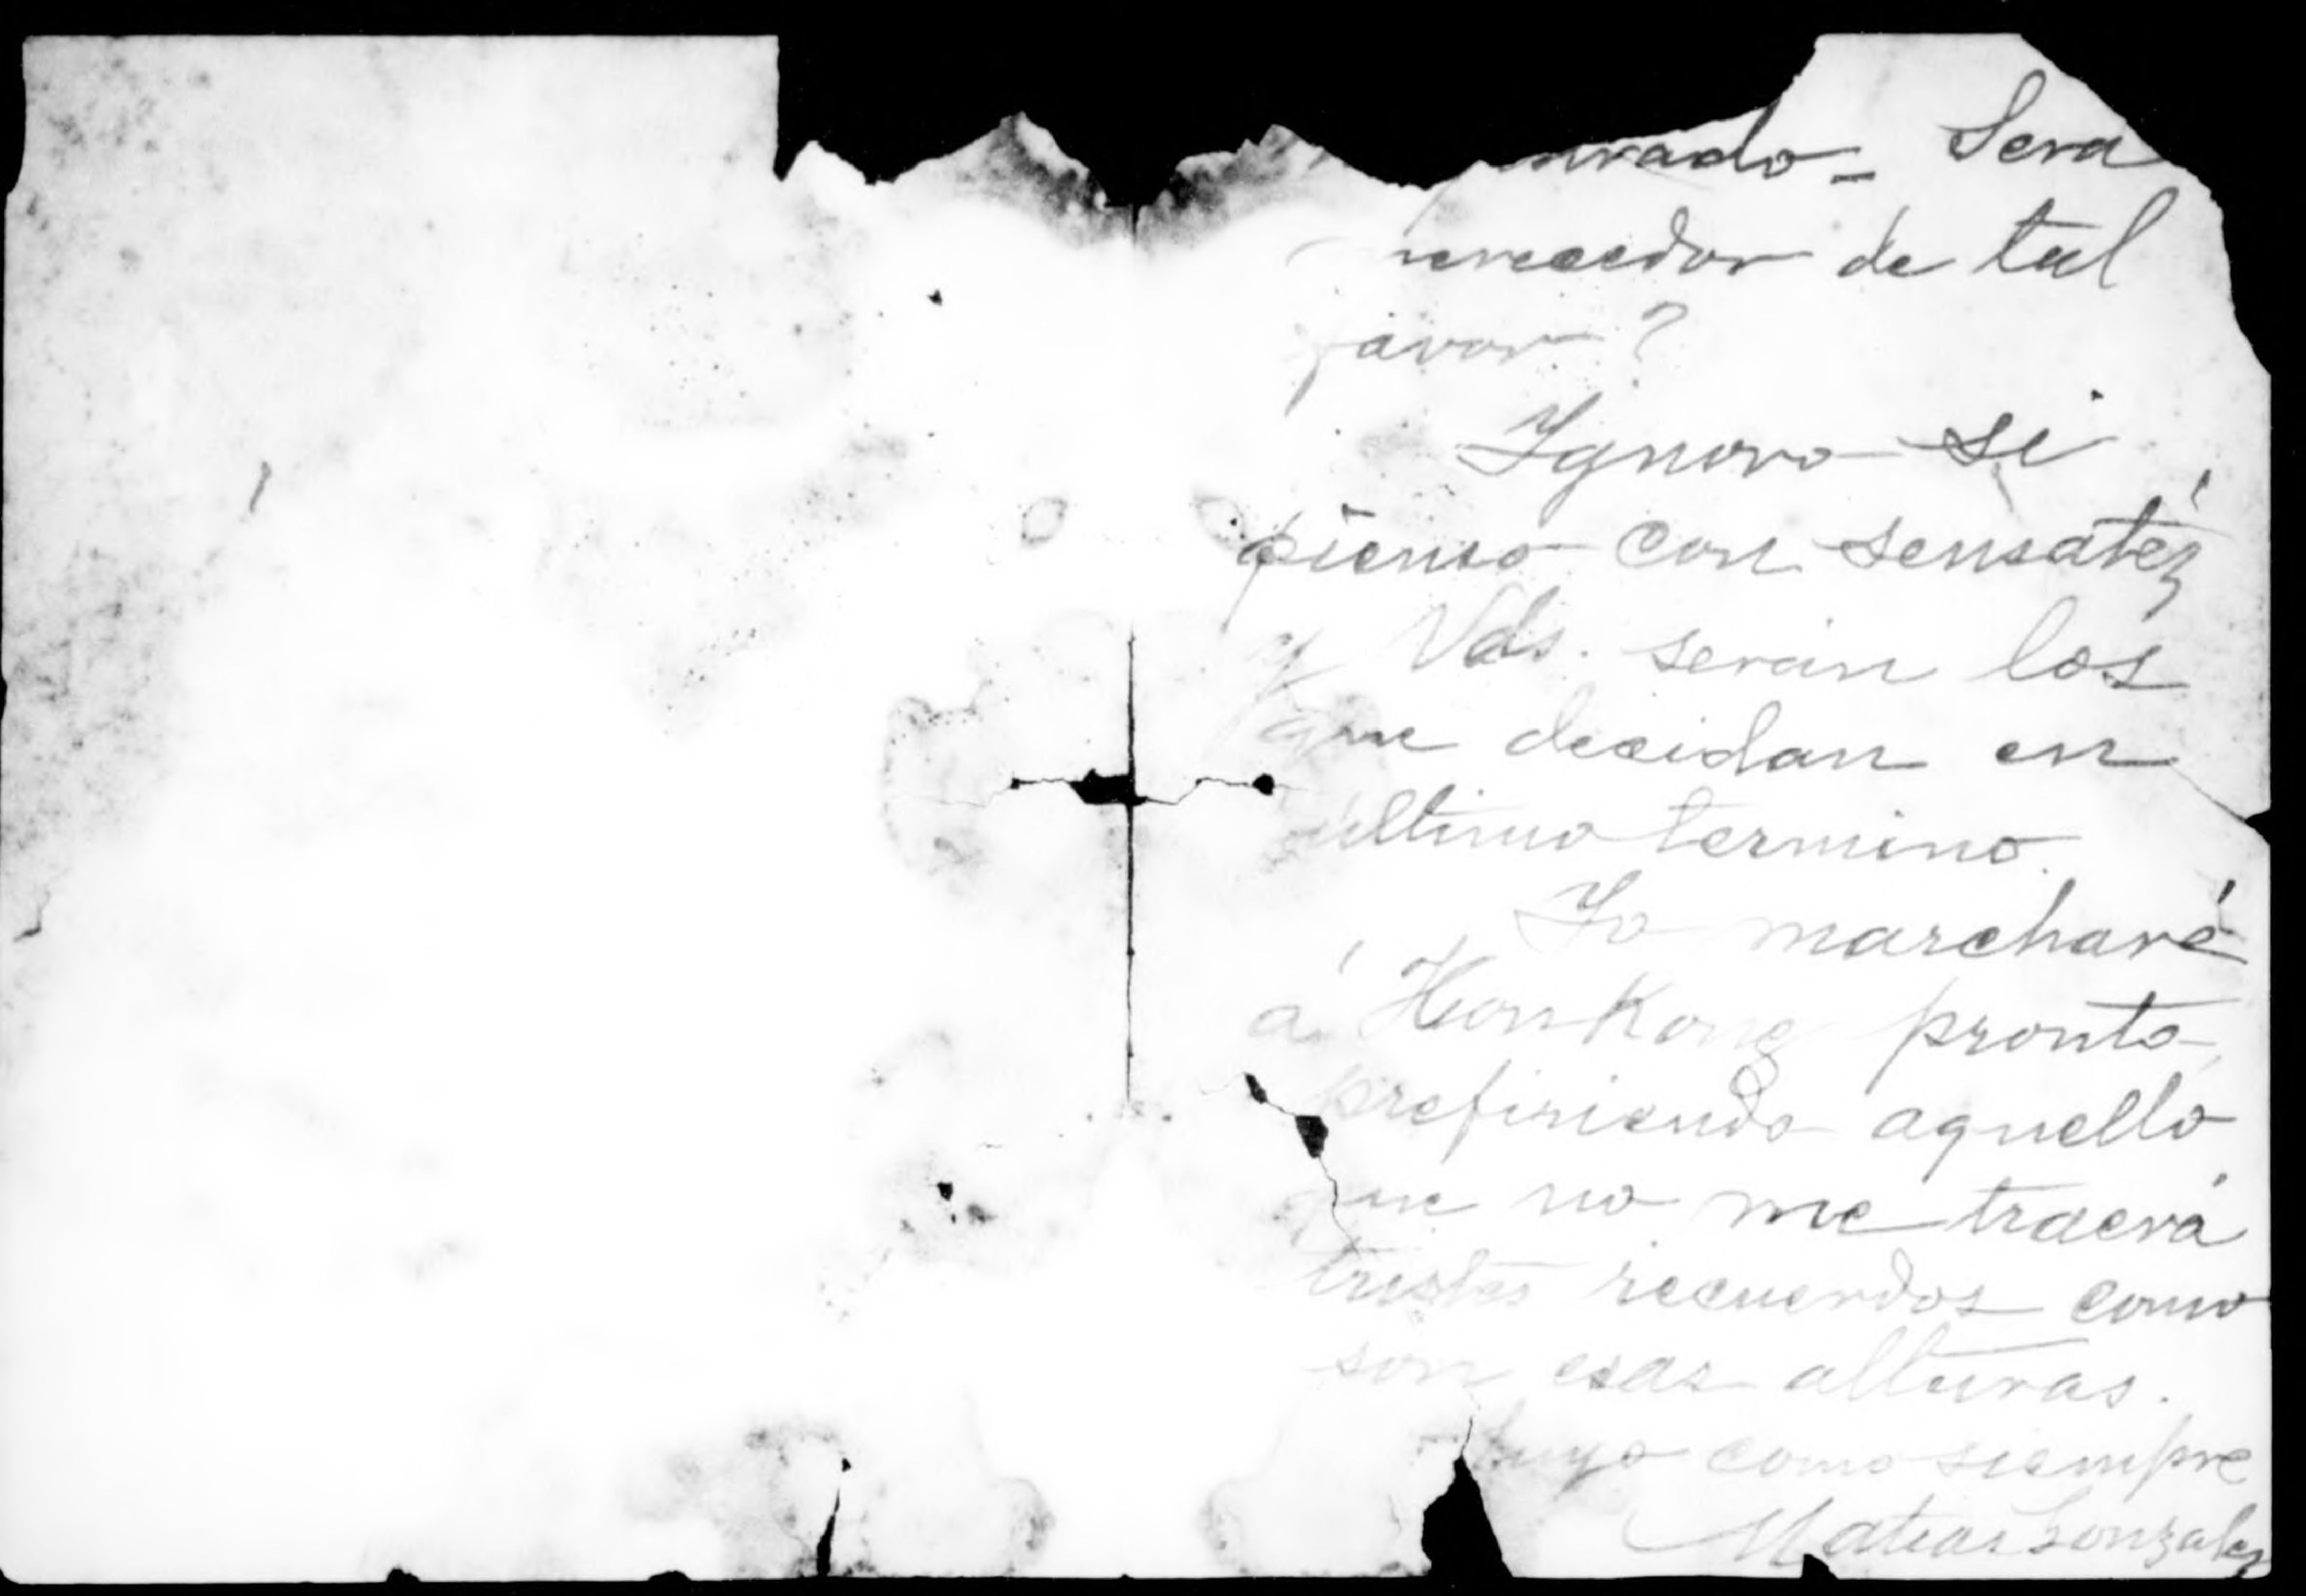 Sera
merecedor de tal
favor?
Ygnoro si
pienso con sensatéz
y Vds. serán los
que decidan en
último termino.
Yo marcharé
á HonKong pronto,
prefiriendo aquello
que no me traerá
tristes recuerdos como
son esas alturas.
Suyo como siempre
Matias Gonzalez